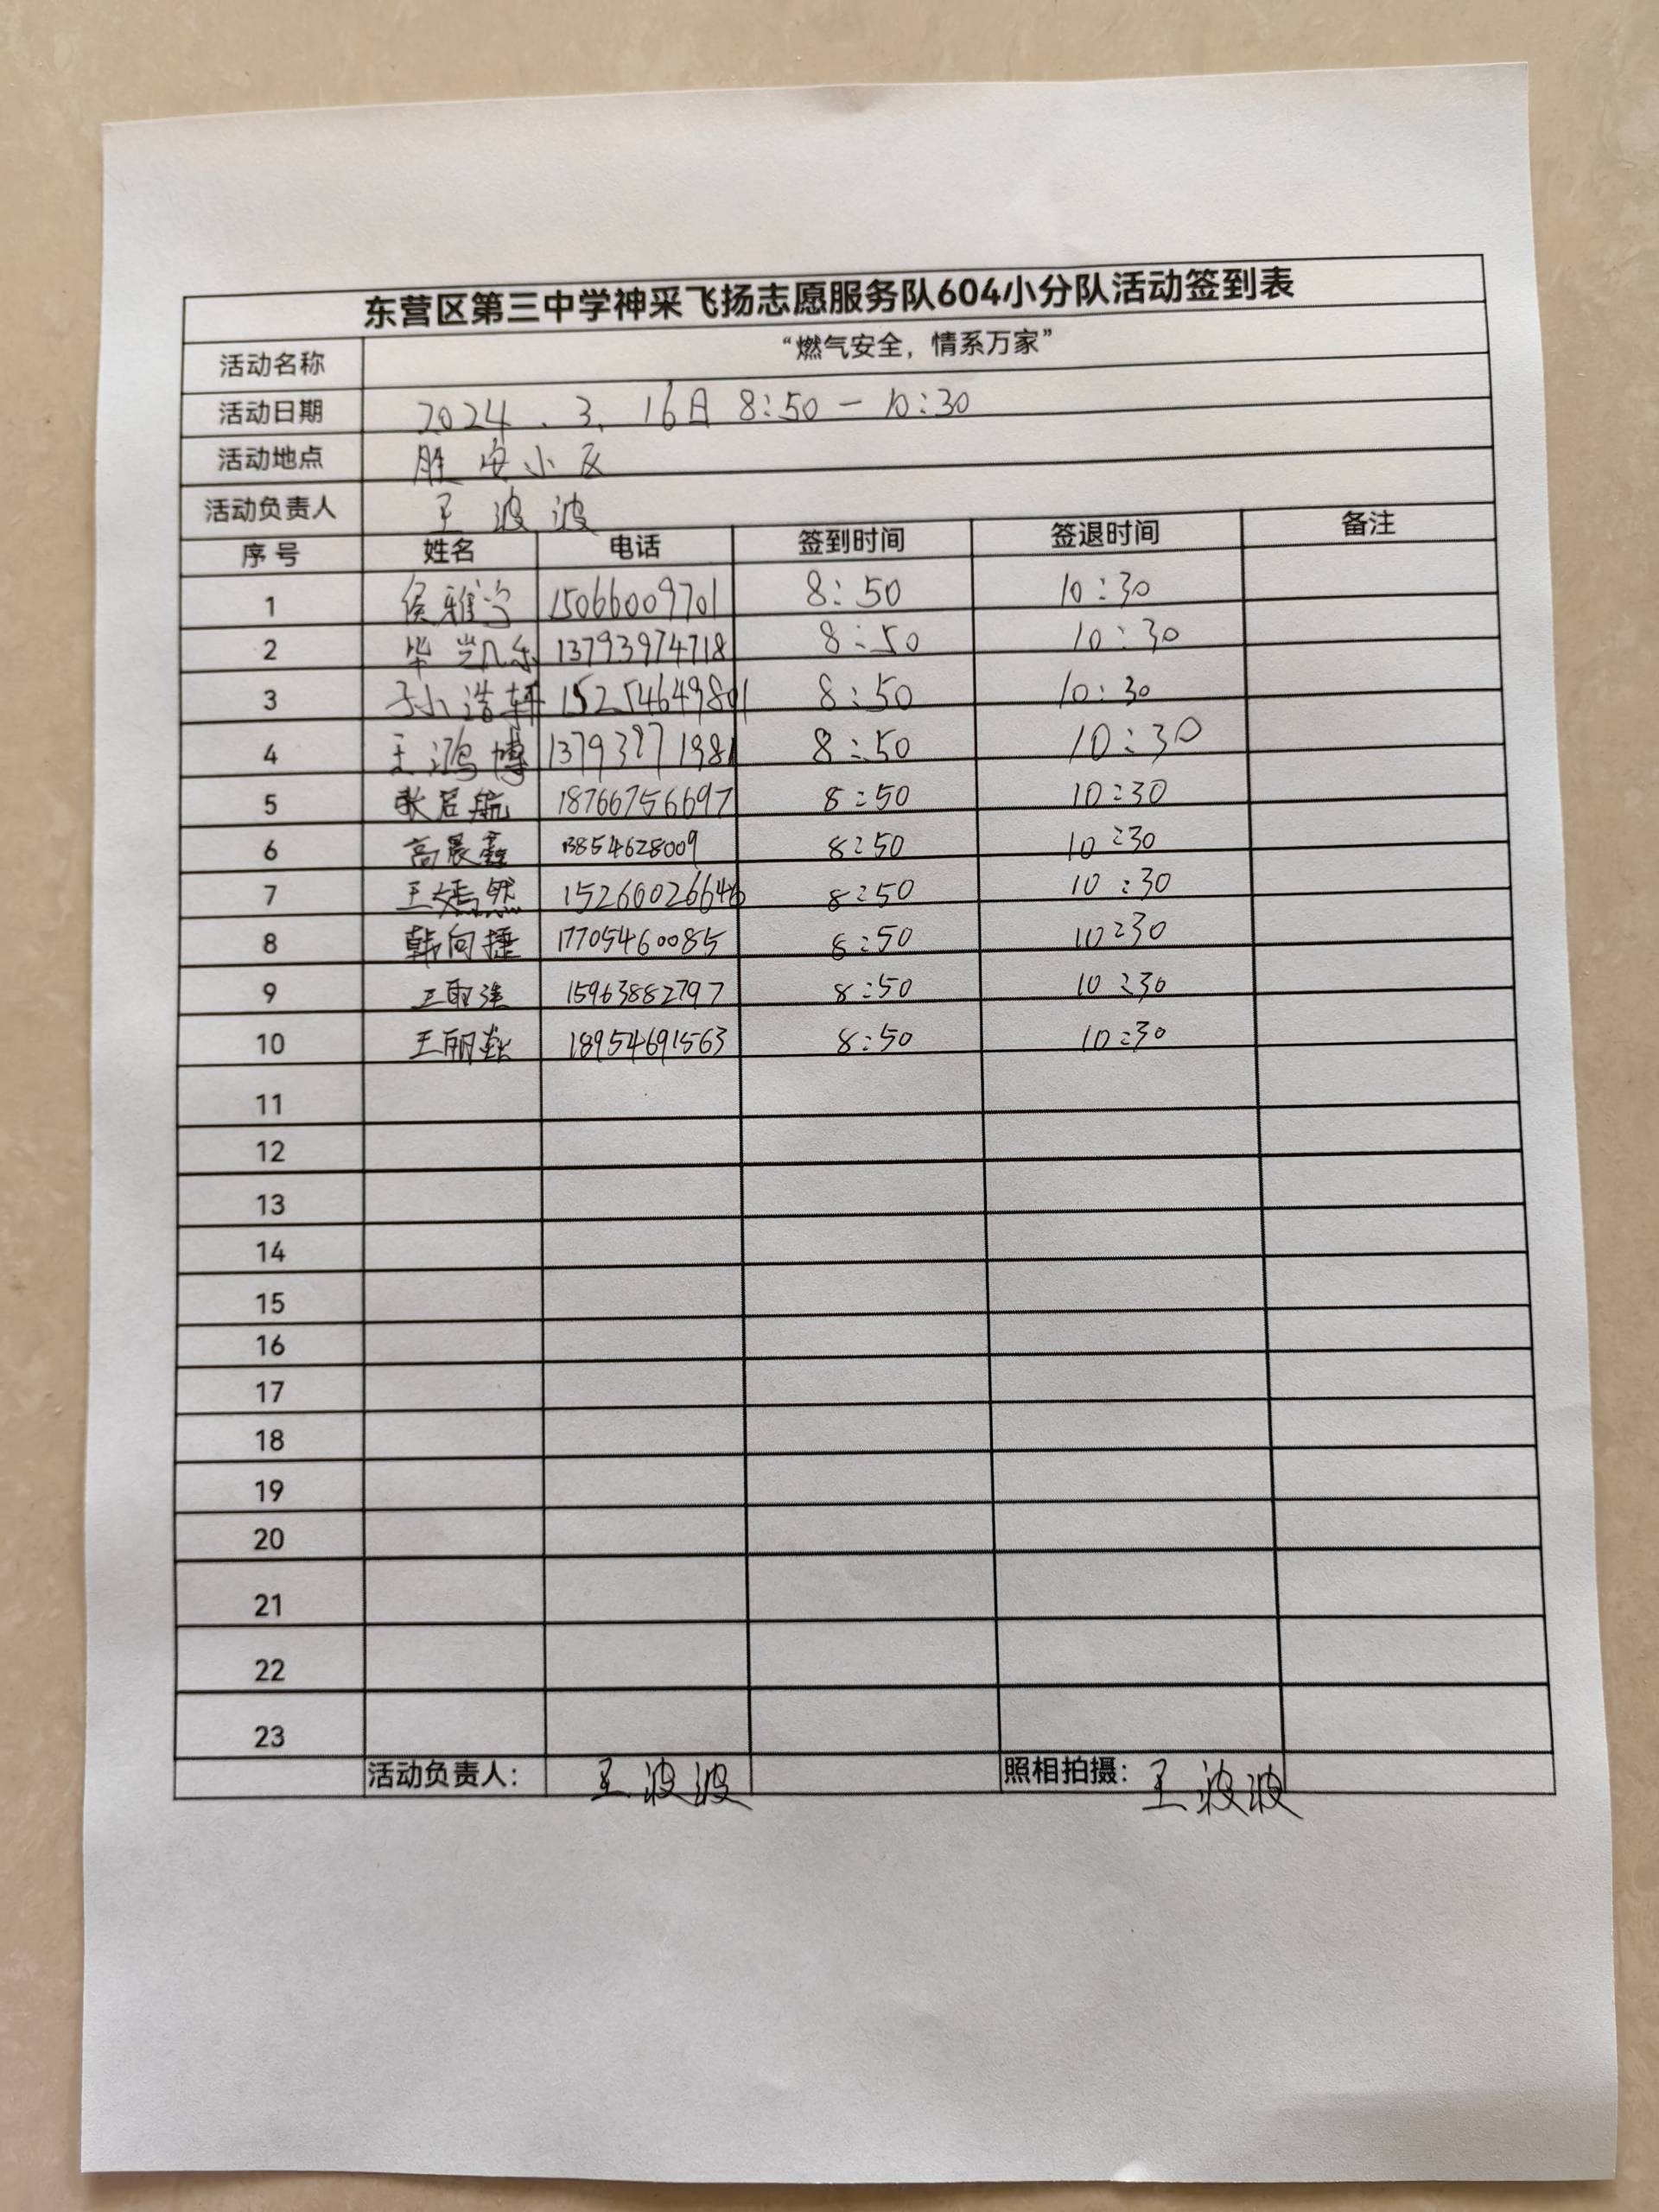 东营区第三中学神采飞扬志愿服务队604小分队活动签到表
活动名称 “燃气安全，情系万家”
活动日期 2024.3.16日 8:50-10:30
活动地点 胜安小区
活动负责人 王波波
序号 姓名 电话 签到时间 签退时间 备注
1 侯雅宁 15066009701 8:50 10:30
2 毕凯乐 13793974718 8:50 10:30
3 孙浩轩 15254649801 8:50 10:30
4 王鸿博 13793871981 8:50 10:30
5 张君航 18766756697 8:50 10:30
6 高晨鑫 13854628009 8:50 10:30
7 王嫣然 15260026646 8:50 10:30
8 韩向捷 17705460085 8:50 10:30
9 王 15963882797 8:50 10:30
10 王丽 18954691563 8:50 10:30
11
12
13
14
15
16
17
18
19
20
21
22
23
活动负责人： 王波波 照相拍摄： 王波波